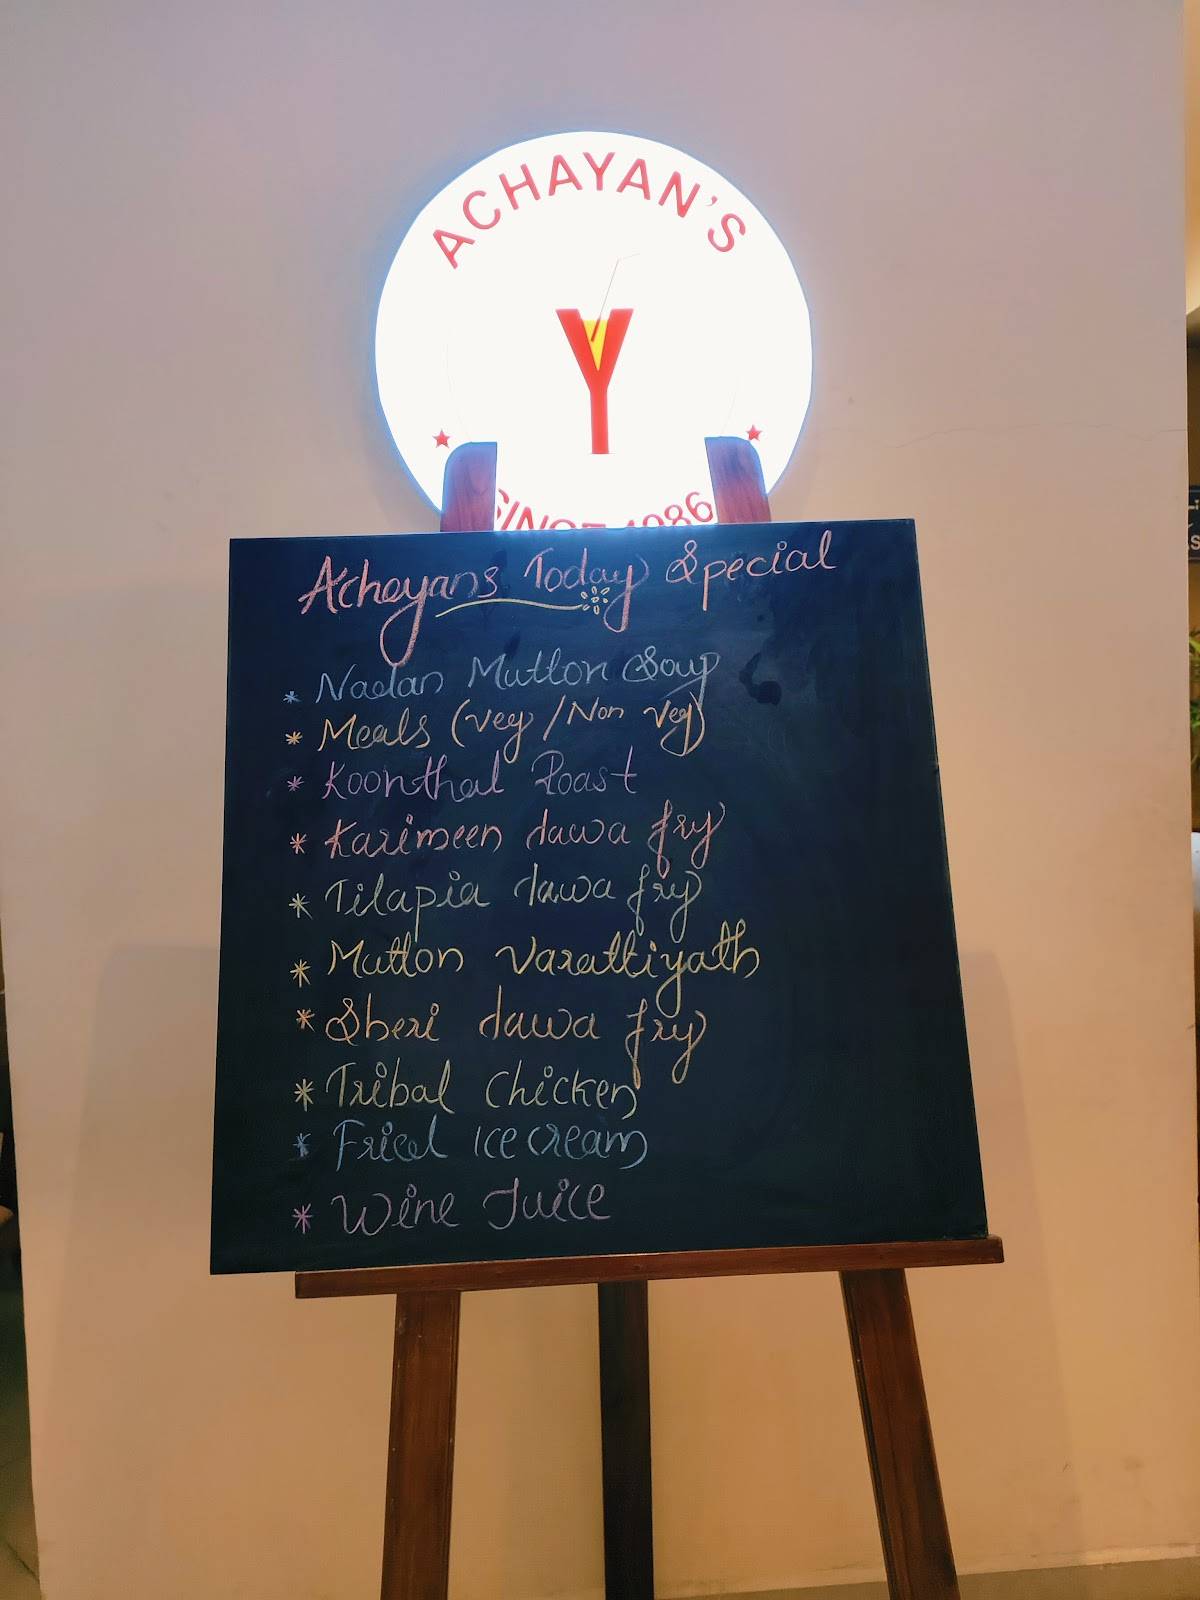 ACHAYAN'S
SINCE 1986
Achayans Today Special
* Nadan Mutton Soup
* Meals (Veg / Non Veg)
* Koonthal Roast
* Karimeen tawa fry
* Tilapia tawa fry
* Mutton Varattiyath
* Sheri tawa fry
* Tribal Chicken
* Fried Ice cream
* Wine Juice